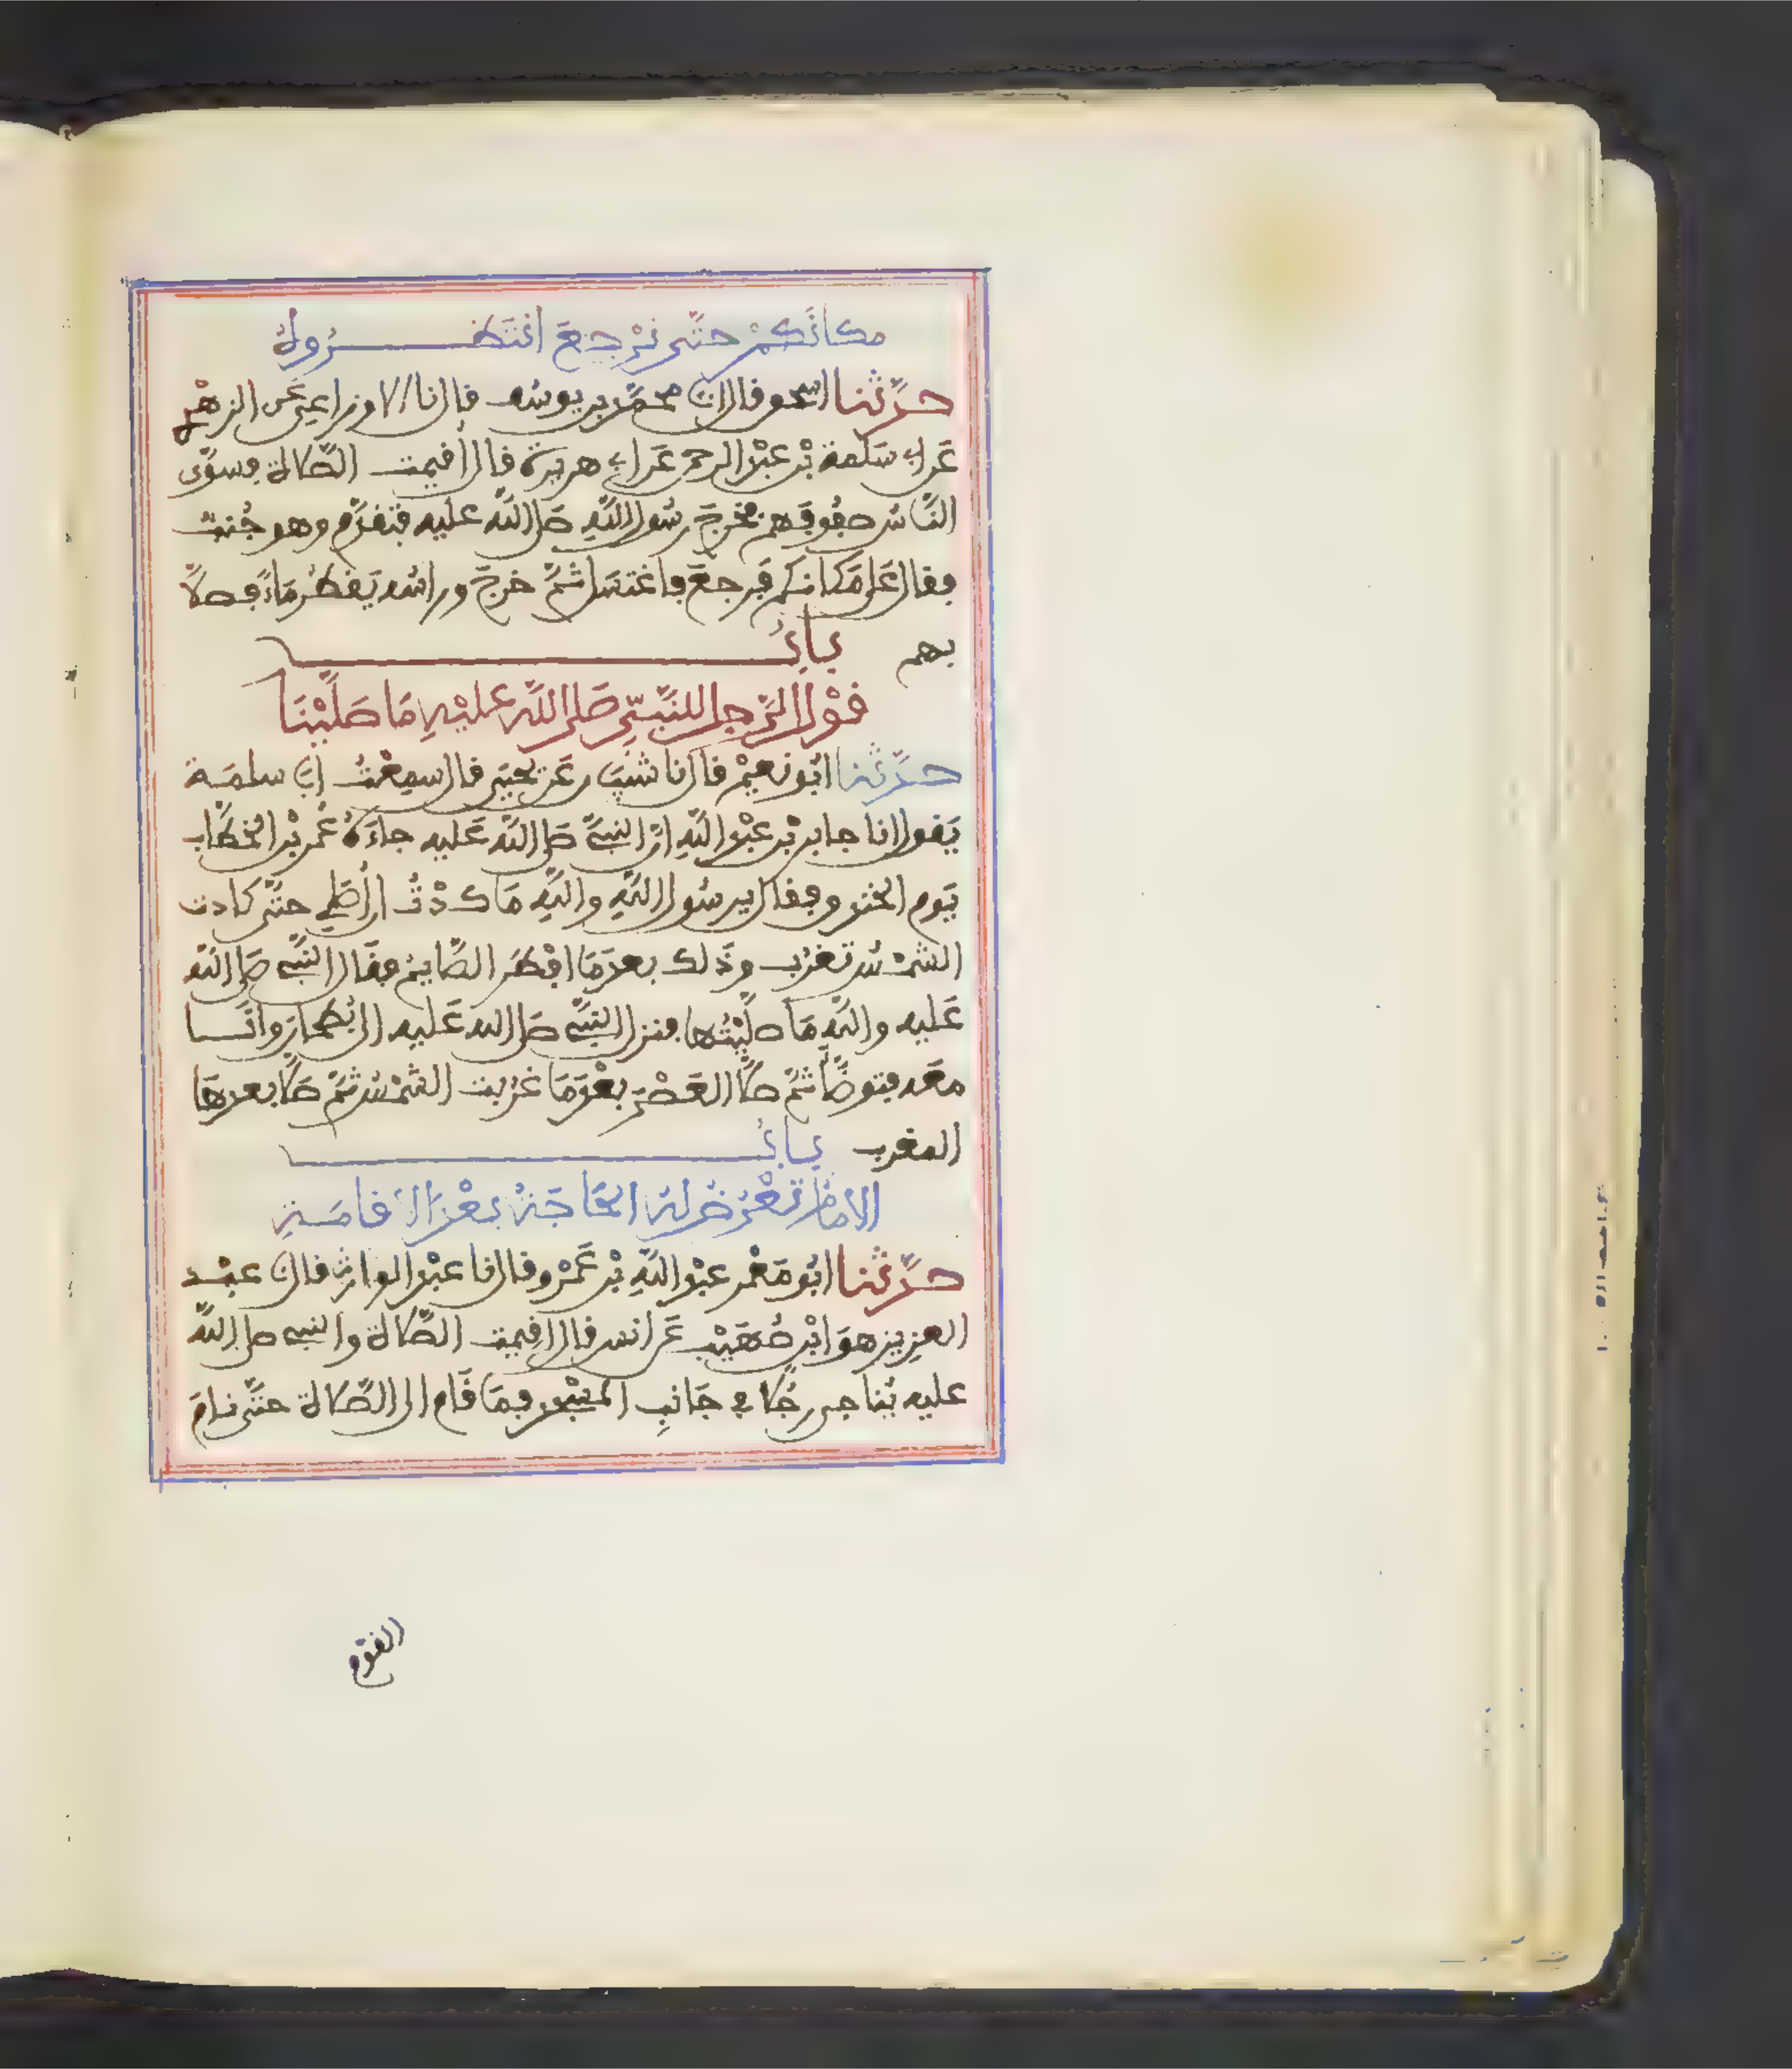 مكانَكمْ حتَّى نرْجِعَ انتَظَــرُوهُ
حدَّثنا اسحٰق قال نا محمَّد بن يوسُف قال نا الاوزاعي عن الزهْري
عَن ابي سَلَمة بْن عبْد الرحمن عَن ابي هريرة قال أقيمت الصَّلاة فسوَّى
النَّاسُ صفُوفهم فخرجَ رسُول اللَّهِ صَلى اللَّه عليه فتقدَّم وهو جُنبٌ
فقال عَلى مَكانكم فَرجعَ فاغتسَل ثمَّ خرجَ وراسُه يَقطُر مَاءً فصلَّى
بهم بابُ
قوْل الرَّجل للنَّبيِّ صَلى اللَّه عليْهِ مَا صَلَّيْنَا
حدَّثنا ابُو نعيْم قال نا شَيبَان عَن يحيَى قال سمِعْتُ أبَا سلمَة
يَقول انا جابر بْن عبْد اللَّهِ انَّ النبيَّ صَلى اللَّه عَليه جاءَهُ عُمر بْن الخطَّاب
يَوم الخندق فقال يرسُول اللَّهِ واللَّهِ مَا كدْتُ ان أُصَلي حتَّى كادت
الشمْسُ تغرُب وذَلك بعدَمَا افْطَر الصَّايمُ فقَال النَّبي صَلى اللَّه
عَليه واللَّهِ مَا صلَّيْتُها فنزل النبيَّ صَلى الله عَليه الى بُطحانَ وانَـا
معَه فتوضَّأ ثمَّ صَلَّى العَصْرَ بعْدَمَا غرُبت الشمْسُ ثمَّ صَلَّى بعدهَا
المغرب بابُ
الامَام تعْرُضُ لهُ الحَاجَةُ بعْدَ الاقامَةِ
حدَّثنا ابُو مَعْمر عبْد اللَّهِ بْن عَمْرو قال نا عبْد الوارث قال نا عبْـد
العزيز هوَ ابْن صُهَيْب عَن انس قال اقيمت الصَّلاة والنبي صلى اللَّه
عليه يُناجى رجُلا في جَانبِ المسْجد فمَا قَام الى الصَّلاة حتَّى نامَ
القوْم